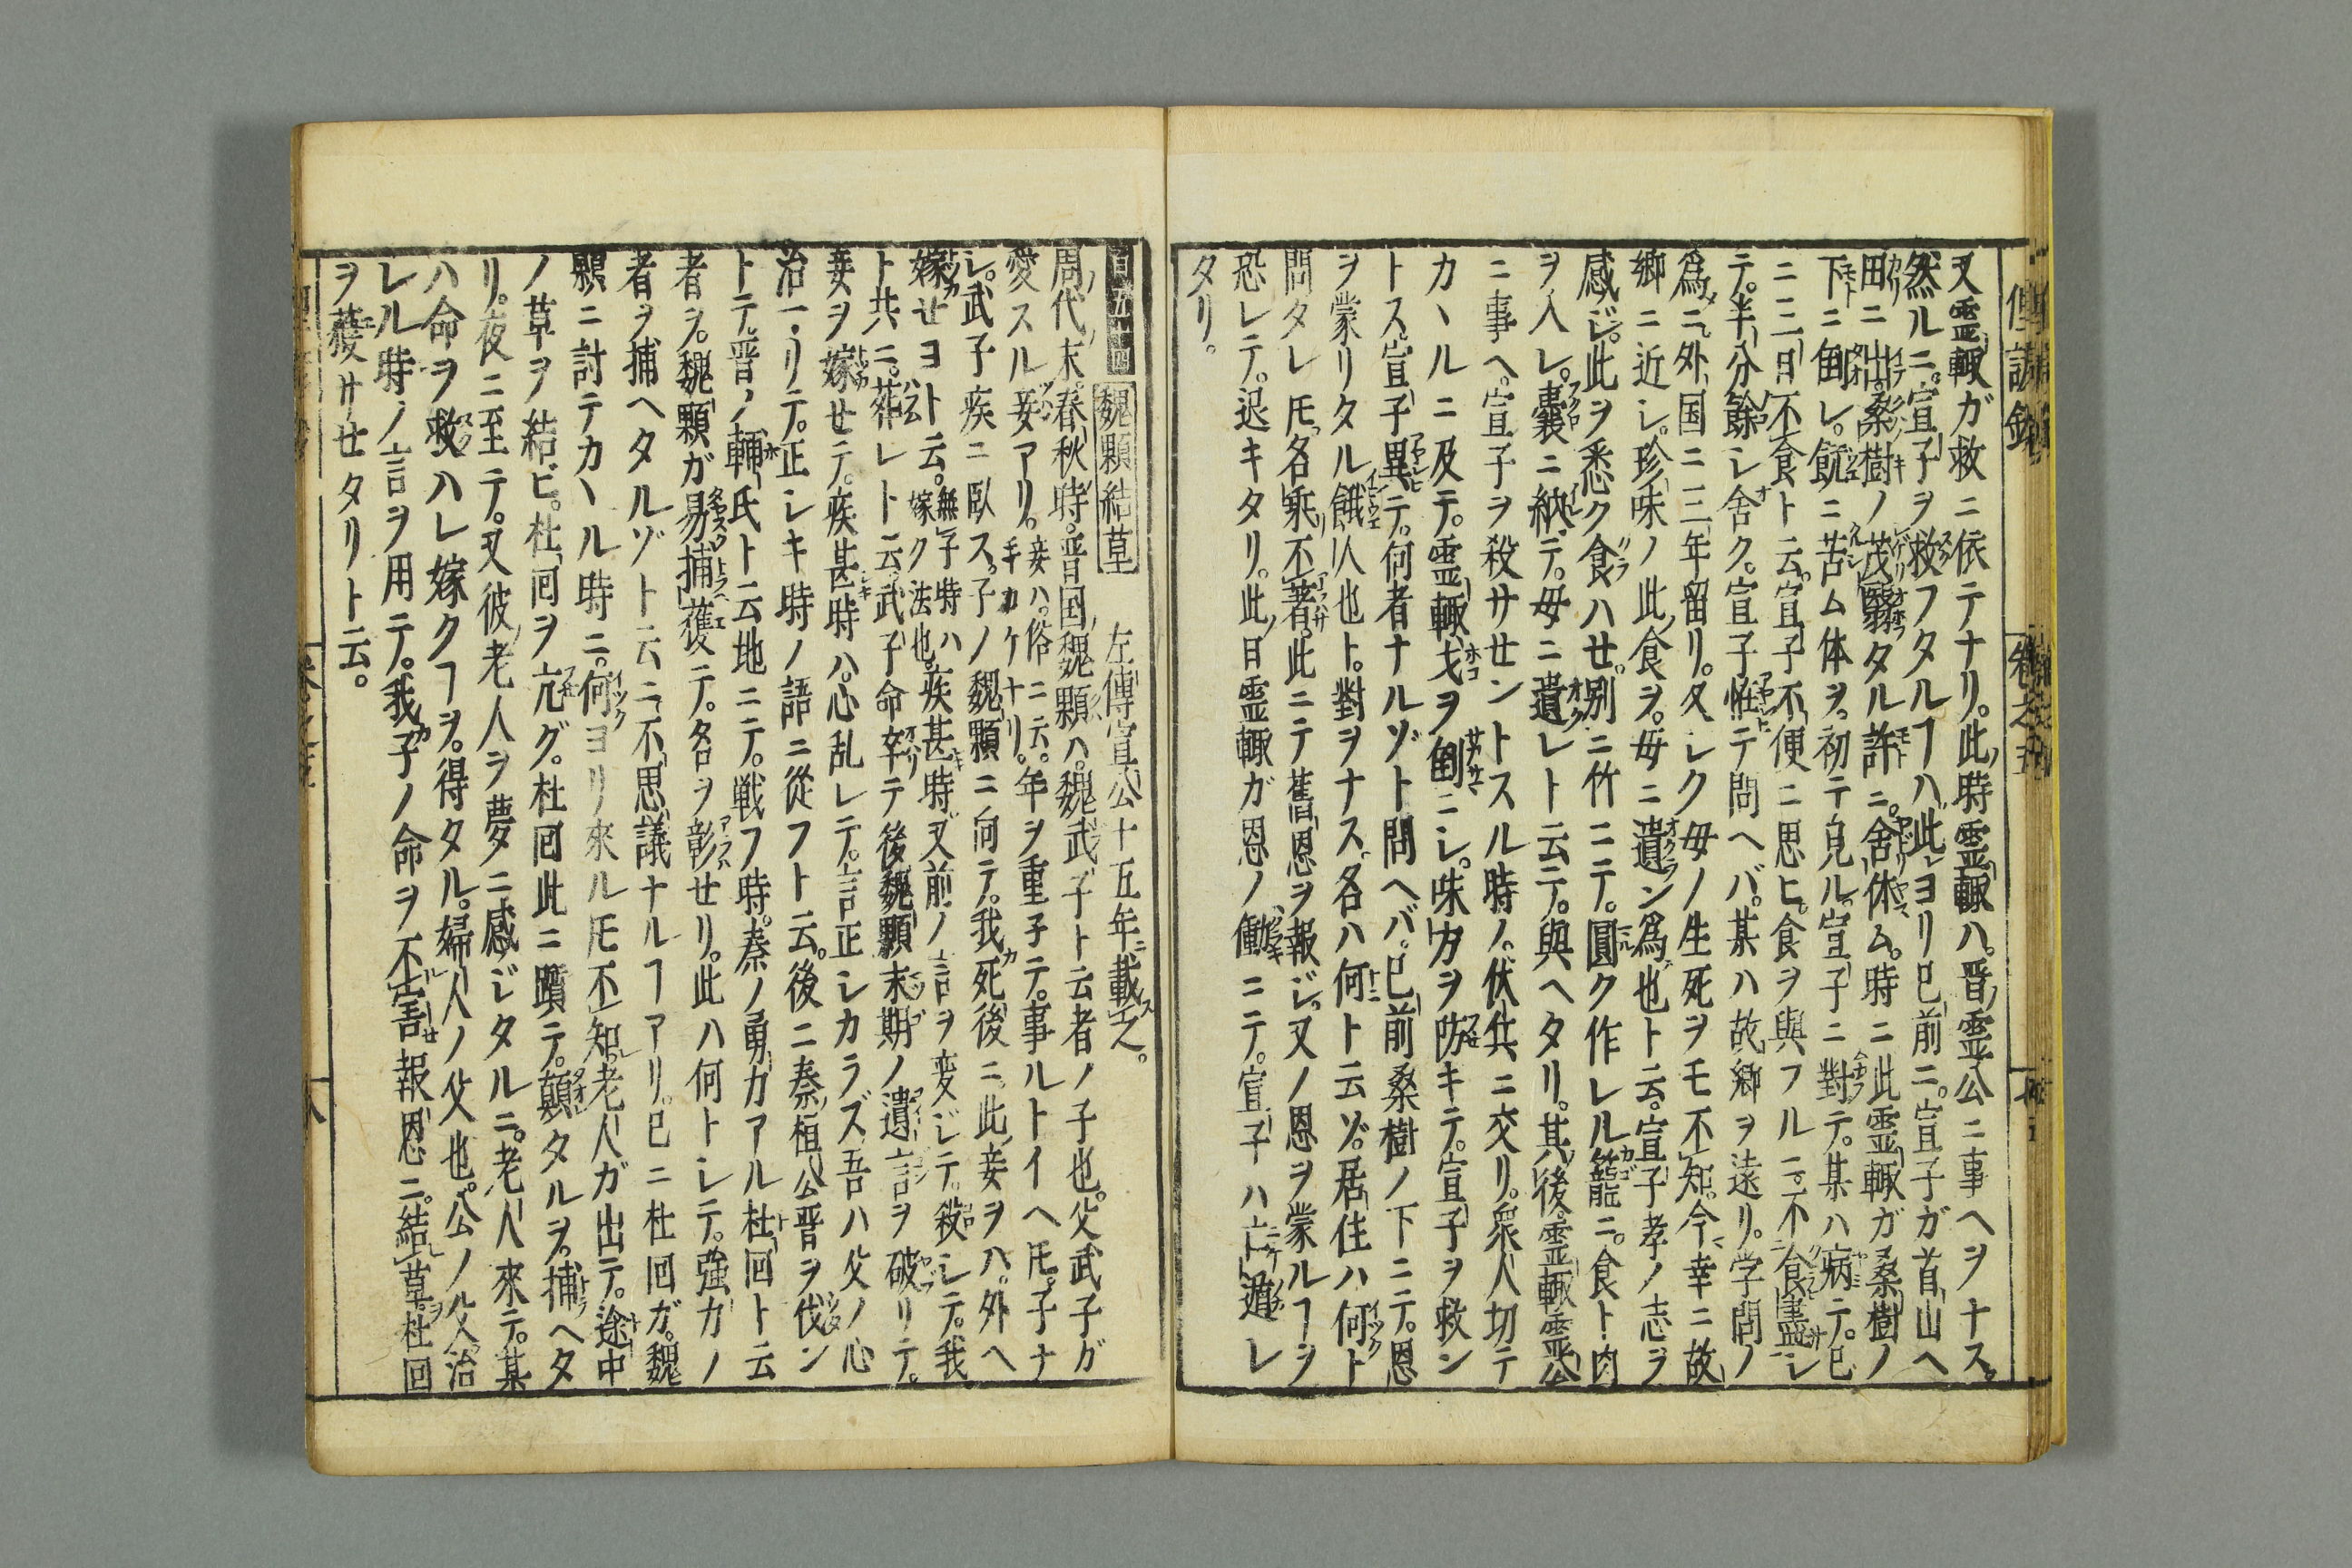 又霊輙ガ救ニ依テナリ。此時霊輙ハ。晋ノ霊公ニ事ヘヲナス。
然ルニ。宣子ヲ救フタルヿハ此ヨリ已前ニ。宣子ガ首山ヘ
田ニ出。桑樹ノ茂翳タル許ニ。舎休ム。時ニ此霊輙ガ桑樹ノ
下ニ倒レ。飢ニ苦ム体ヲ。初テ見ル。宣子ニ對テ。某ハ病テ。已
ニ三日不食ト云。宣子不便ニ思ヒ。食ヲ與フルニ。不食盡シ
テ。半分餘シ舎ク。宣子恠テ問ヘバ。某ハ故郷ヲ遠リ。学問ノ
爲ニ。外国ニ三年留リ。久シク母ノ生死ヲモ不知。今幸ニ故
郷ニ近シ。珍味ノ此食ヲ。母ニ遺ン爲也ト云。宣子孝ノ志ヲ
感ジ。此ヲ悉ク食ハせ。別ニ竹ニテ。圓ク作レル籠ニ。食ト肉
ヲ入レ。嚢ニ納テ。母ニ遺レト云テ。與ヘタリ。其後。霊輙霊公
ニ事ヘ。宣子ヲ殺サせントスル時ノ。伏兵ニ交リ。衆人切テ
カヽルニ及テ。霊輙戈ヲ倒ニシ。味方ヲ防キテ。宣子ヲ救ン
トス。宣子異テ。何者ナルゾト問ヘバ。已前桑樹ノ下ニテ。恩
ヲ蒙リタル餓人也ト。對ヲナス。名ハ何ト云ゾ。居住ハ何ト
問タレ𪜈。名乘不著。此ニテ舊恩ヲ報ジ。又ノ恩ヲ蒙ルヿヲ
恐レテ。退キタリ。此日霊輙ガ恩ノ働ニテ。宣子ハ亡遁レ
タリ。
魏顆結草　左傳宣公十五年ニ載之。
周代ノ末。春秋ノ時。晋国ノ魏顆ハ。魏武子ト云者ノ子也。父武子ガ
愛スル妾アリ。妾ハ。俗ニ云。手カケナリ。年ヲ重子テ。事ルトイヘ𪜈。子ナ
シ。武子疾ニ臥ス。子ノ魏顆ニ向テ。我死後ニ。此妾ヲハ。外ヘ
嫁せヨト云。無子時ハ嫁ク法也。疾甚時。又前ノ言ヲ変ジテ。殺シテ。我
ト共ニ。葬レト云。武子命卒テ後。魏顆末期ノ遺言ヲ破リテ。
妾ヲ嫁せテ。疾甚時ハ。心乱レテ。言正シカラズ。吾ハ父ノ心
治一リテ。正シキ時ノ語ニ從フト云。後ニ秦桓公晋ヲ伐ン
トテ。晋ノ輔氏ト云地ニテ。戦フ時。秦ノ勇力アル杜回ト云
者ヲ。魏顆ガ易捕獲テ。名ヲ彰せリ。此ハ何トレテ。強力ノ
者ヲ捕ヘタルゾト云ニ。不思議ナルヿアリ。已ニ杜回ガ。魏
顆ニ討テカヽル時ニ。何ヨリ來ル𪜈不知。老人ガ出テ。途中
ノ草ヲ結ビ。杜回ヲ亢グ。杜回此ニ躓テ。顛タルヲ。捕ヘタ
リ。夜ニ至テ。又彼老人ヲ夢ニ感ジタルニ。老人來テ。某
ハ命ヲ救ハレ嫁クヿヲ。得タル。婦人ノ父也。公ノ父治
レル時ノ言ヲ用テ。我子ノ命ヲ不害報恩ニ。結草。杜回
ヲ獲サせタリト云。